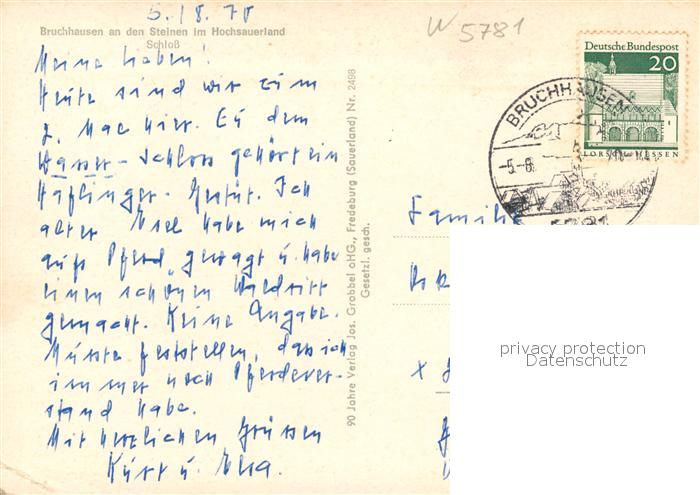 5./8. 70
W 5781
Bruchhausen an den Steinen im Hochsauerland
Schloß
Meine Lieben!
Heute sind wir zum
2. Mal hier. Zu dem
Wasser-Schloss gehört ein
Haflinger-Gestüt. Ich
alter Esel habe mich
aufs Pferd gewagt u. habe
einen schönen Waldritt
gemacht. Keine Angabe.
Musste feststellen, dass ich
immer noch Pferdever-
stand habe.
Mit herzlichen Grüssen
Kurt u. Elsa.
90 Jahre Verlag Jos. Grobbel oHG., Fredeburg (Sauerland) Nr. 2498
Gesetzl. gesch.
Deutsche Bundespost
20
LORSCH/HESSEN
BRUCHHAUSEN
5781
Familie
privacy protection
Datenschutz